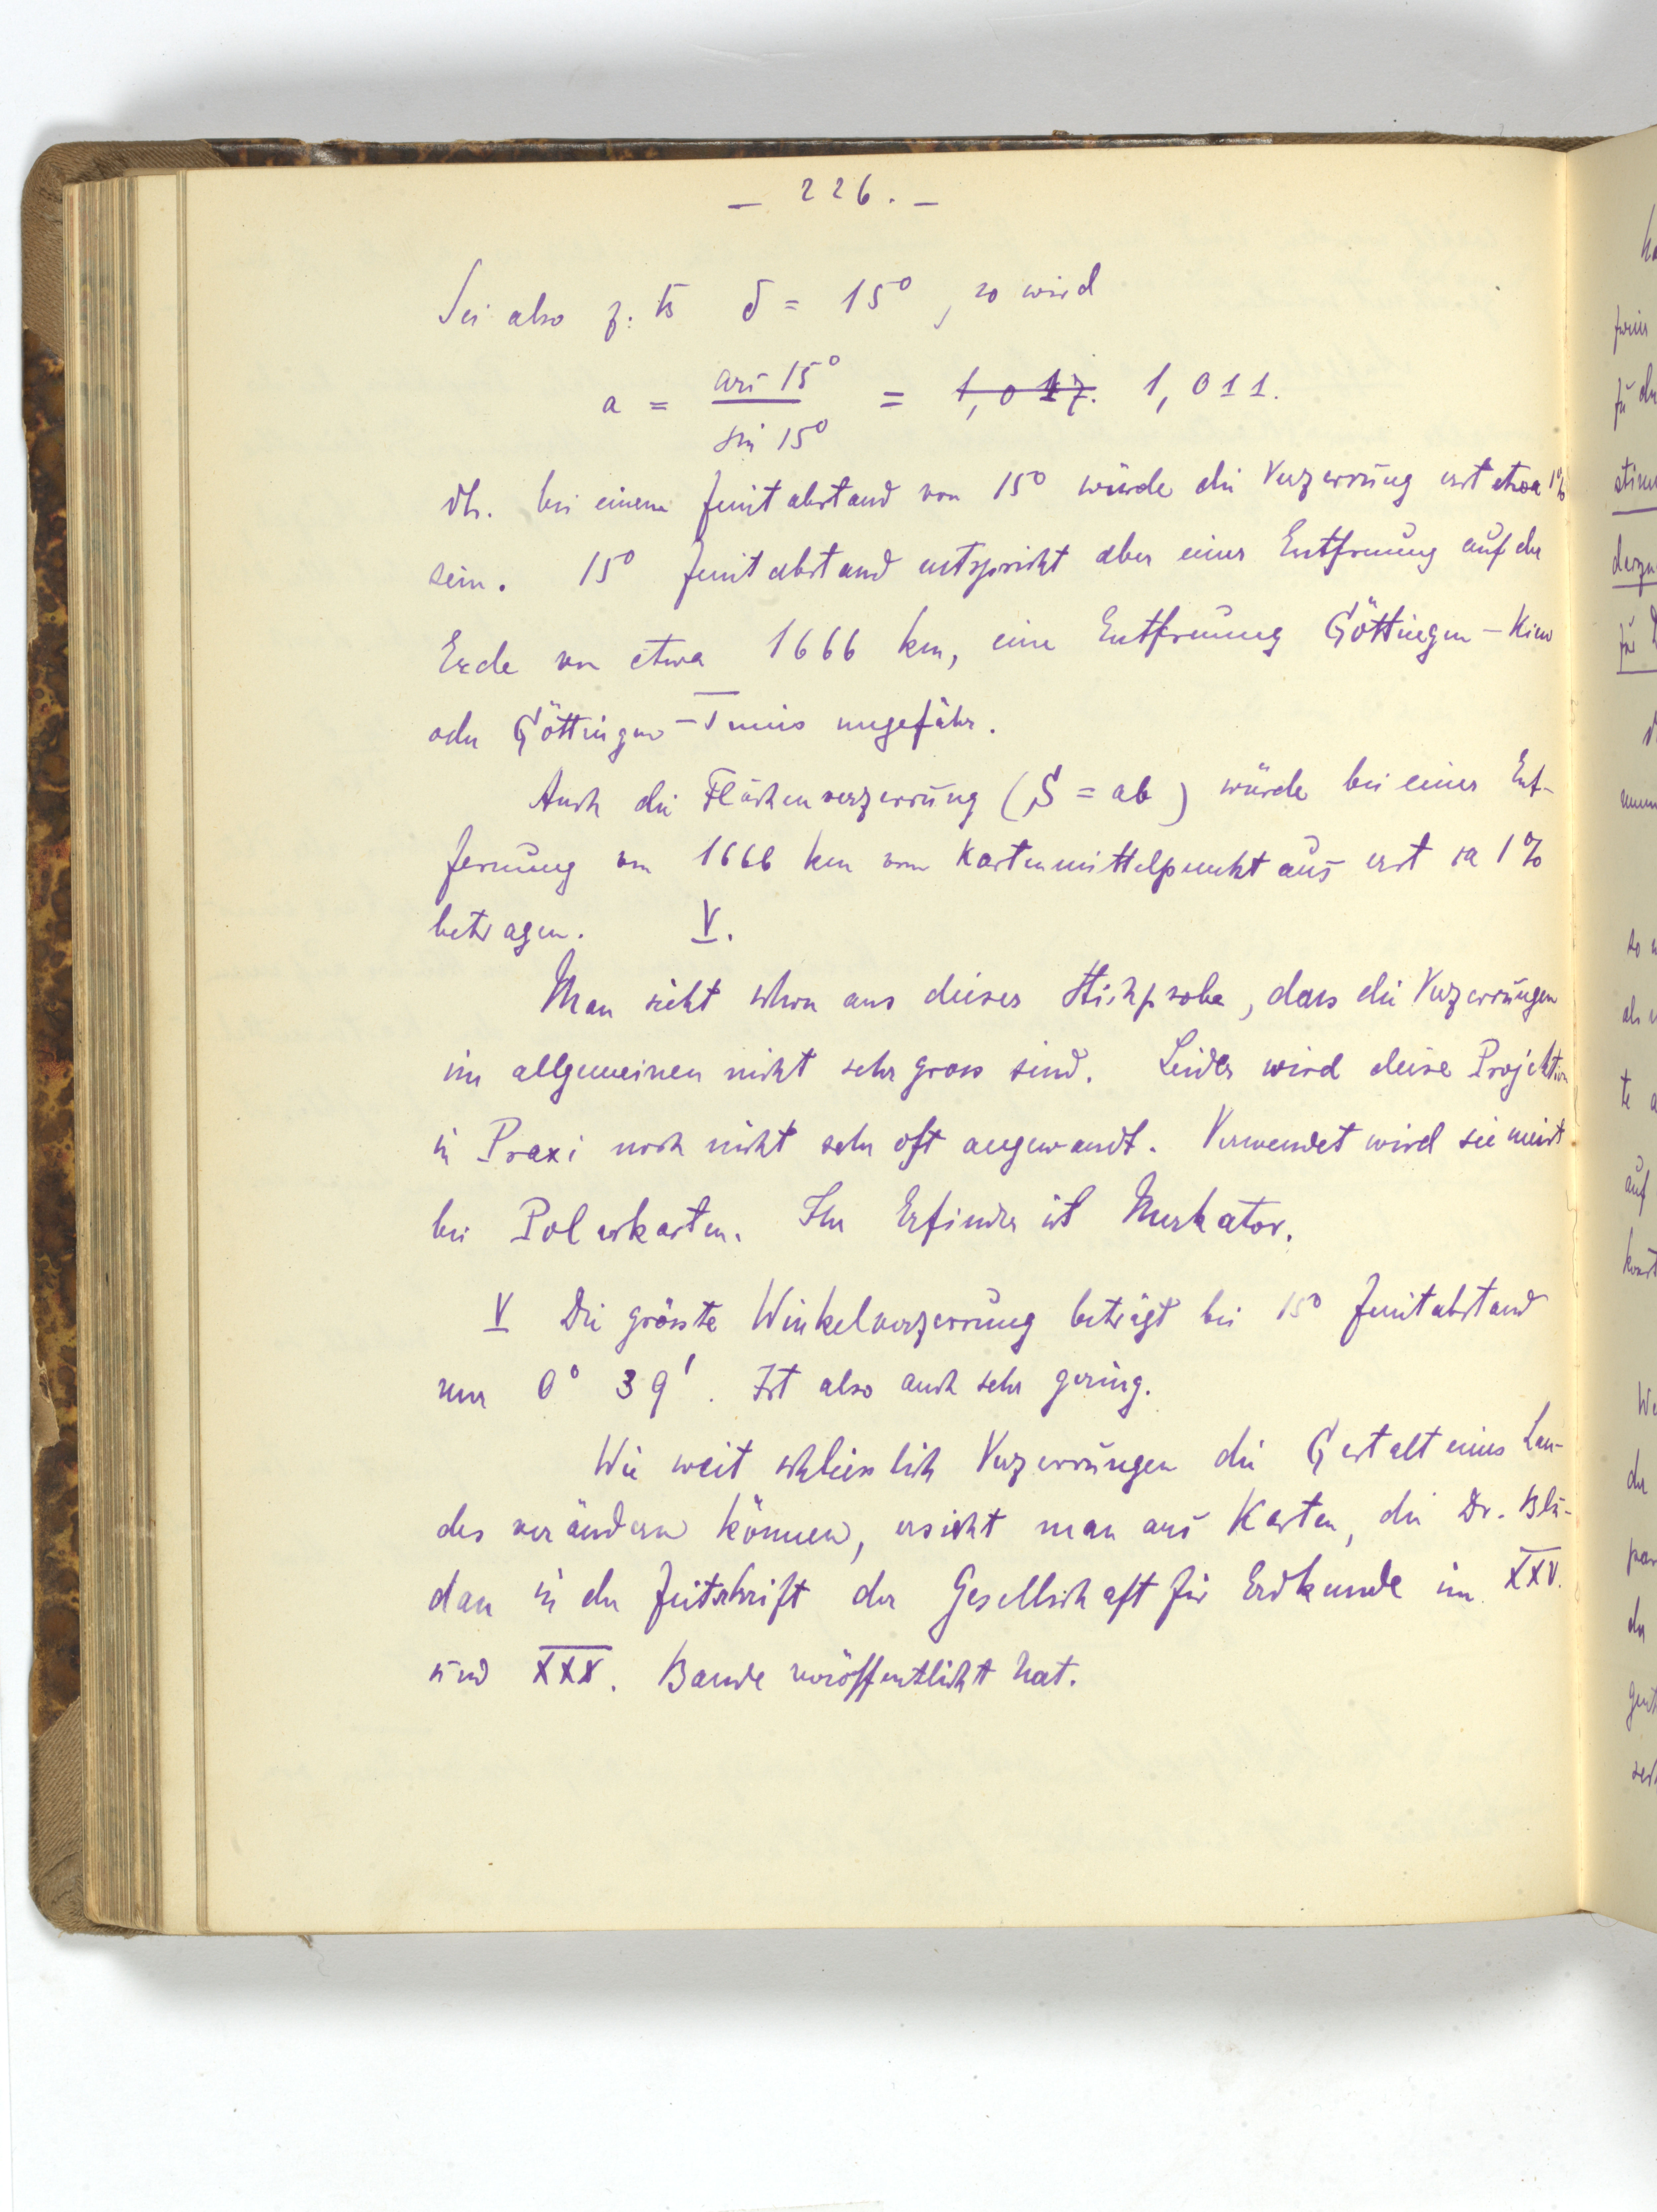 – 226. –
Sei also z. B δ = 15°, so wird
a = arc 15° / sin 15° = 1,017. 1,011.
dh. bei einem Zenitabstand von 15° würde die Verzerrung erst etwa 1%
sein. 15° Zenitabstand entspricht aber einer Entfernung auf der
Erde von etwa 1666 km, eine Entfernung Göttingen – Kiew
oder Göttingen – Tunis ungefähr.
Auch die Flächenverzerrung (S = ab) würde bei einer Ent-
fernung von 1666 km vom Kartenmittelpunkt aus erst ca 1%
betragen. V.
Man sieht schon aus dieser Stichprobe, dass die Verzerrungen
im allgemeinen nicht sehr gross sind. Leider wird diese Projektion
in Praxi noch nicht sehr oft angewandt. Verwendet wird sie meist
bei Polarkarten. Ihr Erfinder ist Merkator.
V Die grösste Winkelverzerrung beträgt bei 15° Zenitabstand
nur 0° 39'. Ist also auch sehr gering.
Wie weit schliesslich Verzerrungen die Gestalt eines Lan-
des verändern können, ersieht man aus Karten, die Dr. Blu-
dau in der Zeitschrift der Gesellschaft für Erdkunde im XXV.
und XXX. Bande veröffentlicht hat.